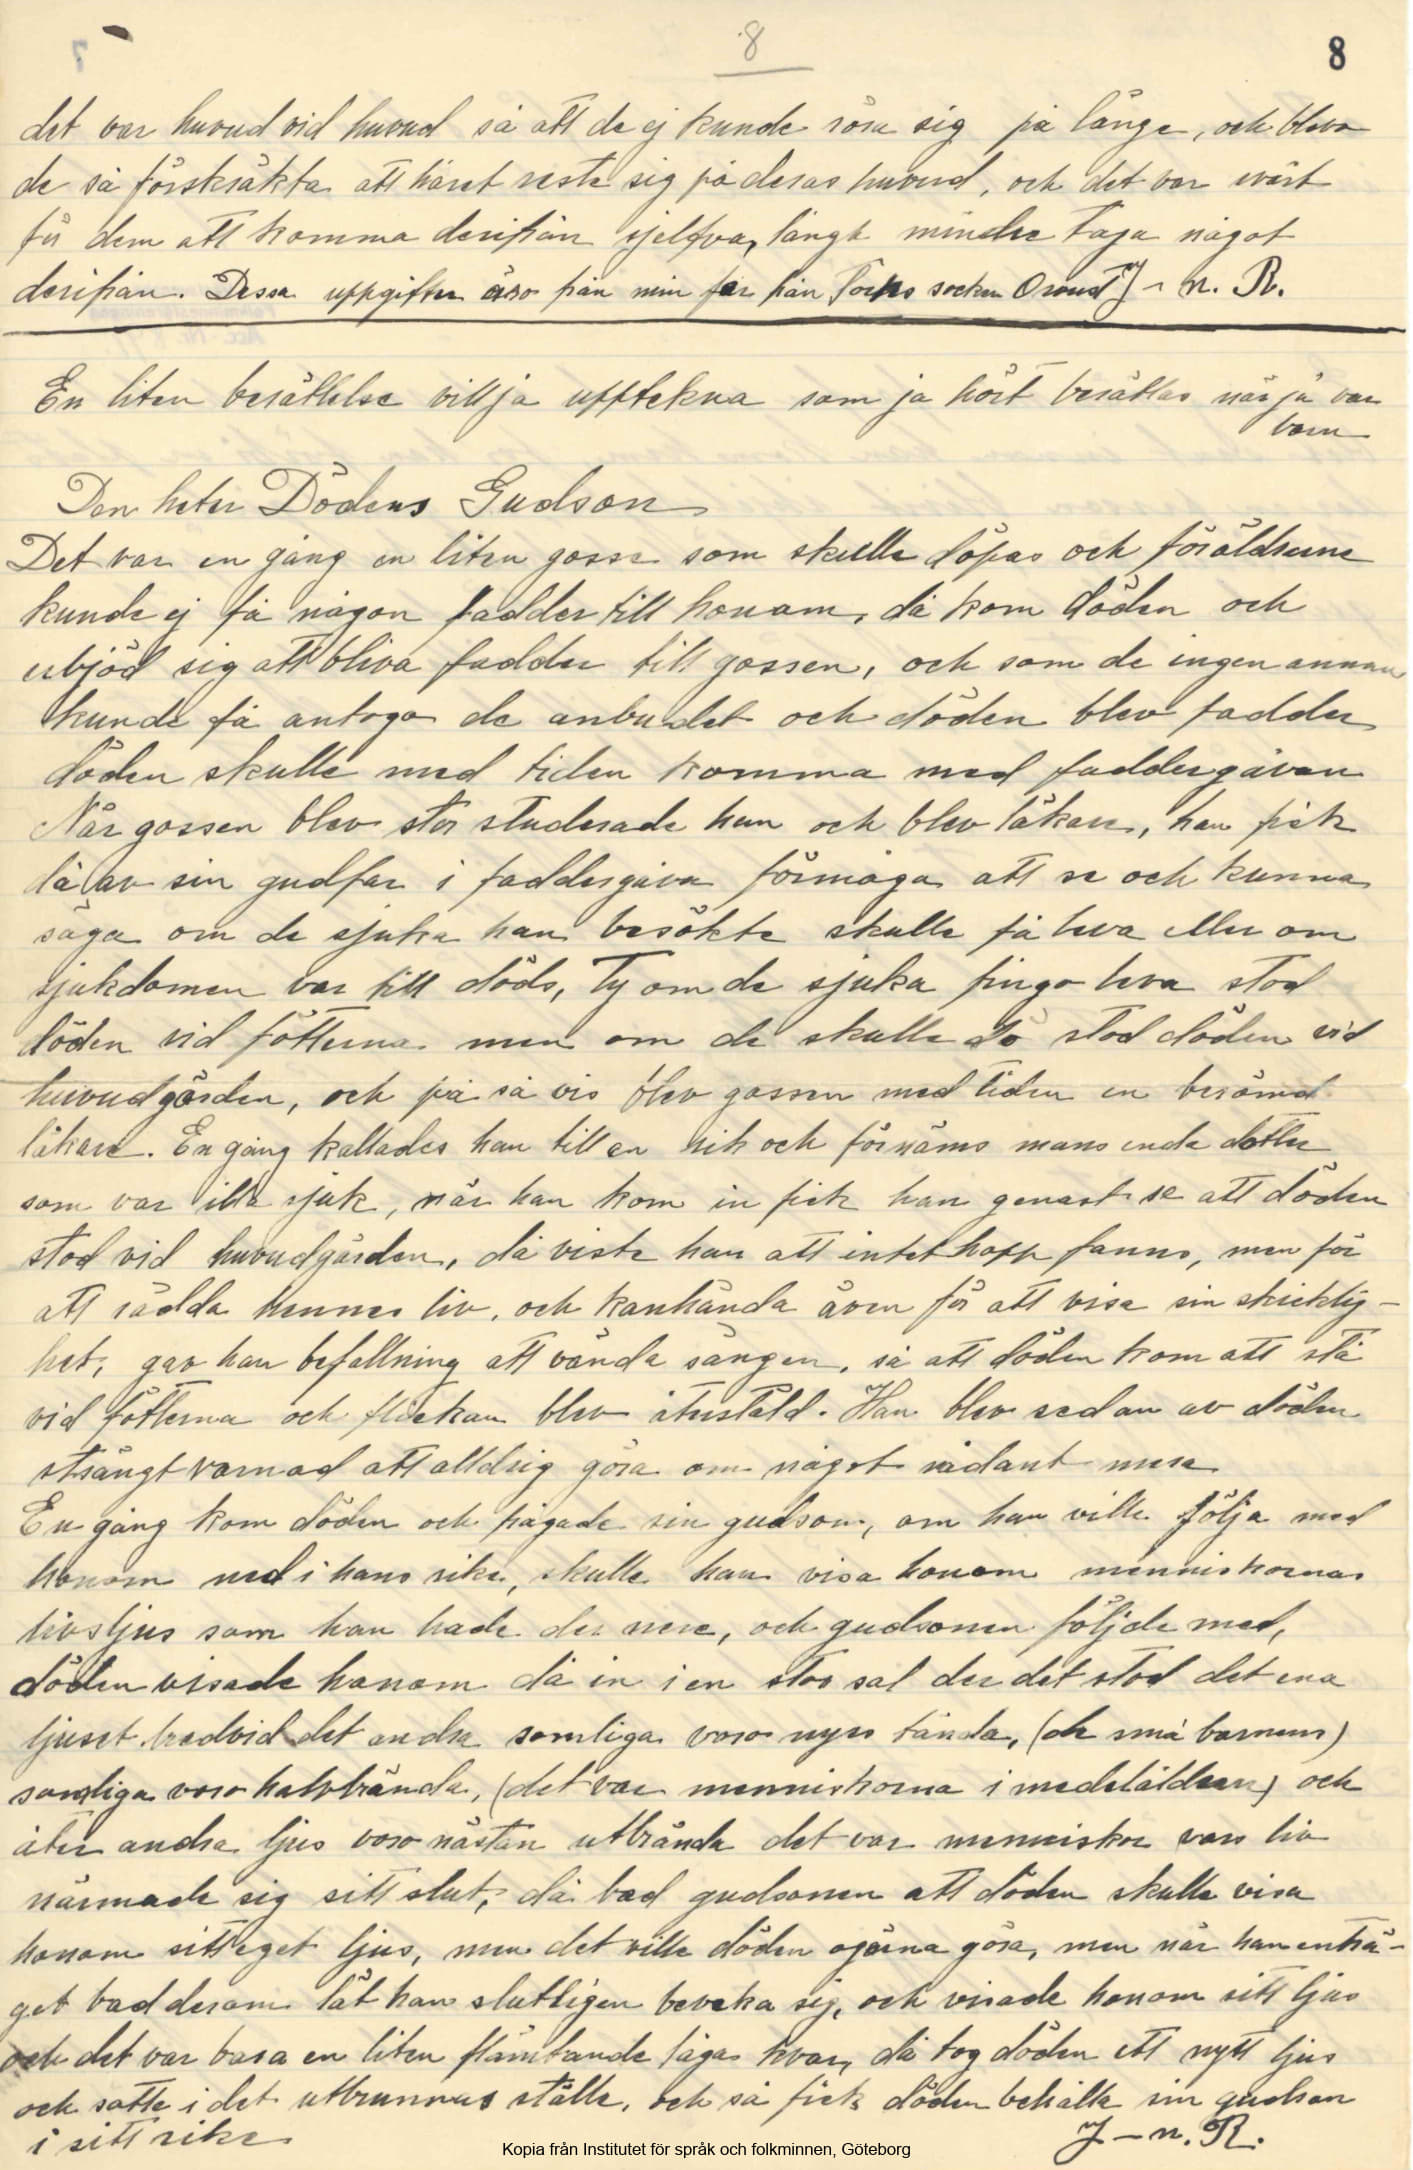 8
8
det var huvud vid huvud så att de ej kunde röra sig på länge, och blevo
de så förskräkta att håret reste sig på deras huvud, och det var svårt
för dem att komma derifrån sjelfva, långt mindre taga något
derifrån. Dessa uppgifter äro från min far från Torps socken Oroust J-n. R.
En liten berättelse vill ja uppteckna som ja hört berättas när ja var
barn
Den heter Dödens Gudson
Det var en gång en liten gosse som skulle döpas och föräldrarne
kunde ej få någon fadder till honom, då kom döden och
erbjöd sig att bliva fadder till gossen, och som de ingen annan
kunde få antogo de anbudet och döden blev fadder
döden skulle med tiden komma med faddergåvan
När gossen blev stor studerade han och blev läkare, han fick
då av sin gudfar i faddergåva förmåga att se och kunna
säga om de sjuka han besökte skulle få leva eller om
sjukdomen var till döds, Ty om de sjuka fingo leva stod
döden vid fötterna men om de skulle dö stod döden vid
huvudgärden, och på så vis blev gossen med tiden en berömd
läkare. En gång kallades han till en rik och förnäms mans enda dotter
som var illa sjuk, när han kom in fick han genast se att döden
stod vid huvudgärden, då viste han att intet hopp fanns, men för
att rädda hennes liv, och kanhända även för att visa sin skicklig-
het, gav han befallning att vända sängen, så att döden kom att stå
vid fötterna och flickan blev återstäld. Han blev sedan av döden
strängt varnad att alldrig göra om något sådant mera
En gång kom döden och frågade sin gudson, om han ville följa med
honom ned i hans rike, skulle han visa honom menniskornas
livsljus som han hade der nere, och gudsonen följde med,
döden visade honom då in i en stor sal der det stod det ena
ljuset bredvid det andra somliga voro nyss tända, (de små barnens)
somliga voro halvbrända, (det var menniskorna i medelåldern) och
åter andra ljus voro nästan utbrända det var menniskor vars liv
närmade sig sitt slut, då bad gudsonen att döden skulle visa
honom sitt eget ljus, men det ville döden ogärna göra, men när han enträ-
get bad derom lät han slutligen beveka sig, och visade honom sitt ljus
och det var bara en liten flämtande låga kvar, då tog döden ett nytt ljus
och satte i det utbrunnas ställe, och så fick döden behålla sin gudson
i sitt rike
J-n. R.
Kopia från Institutet för språk och folkminnen, Göteborg